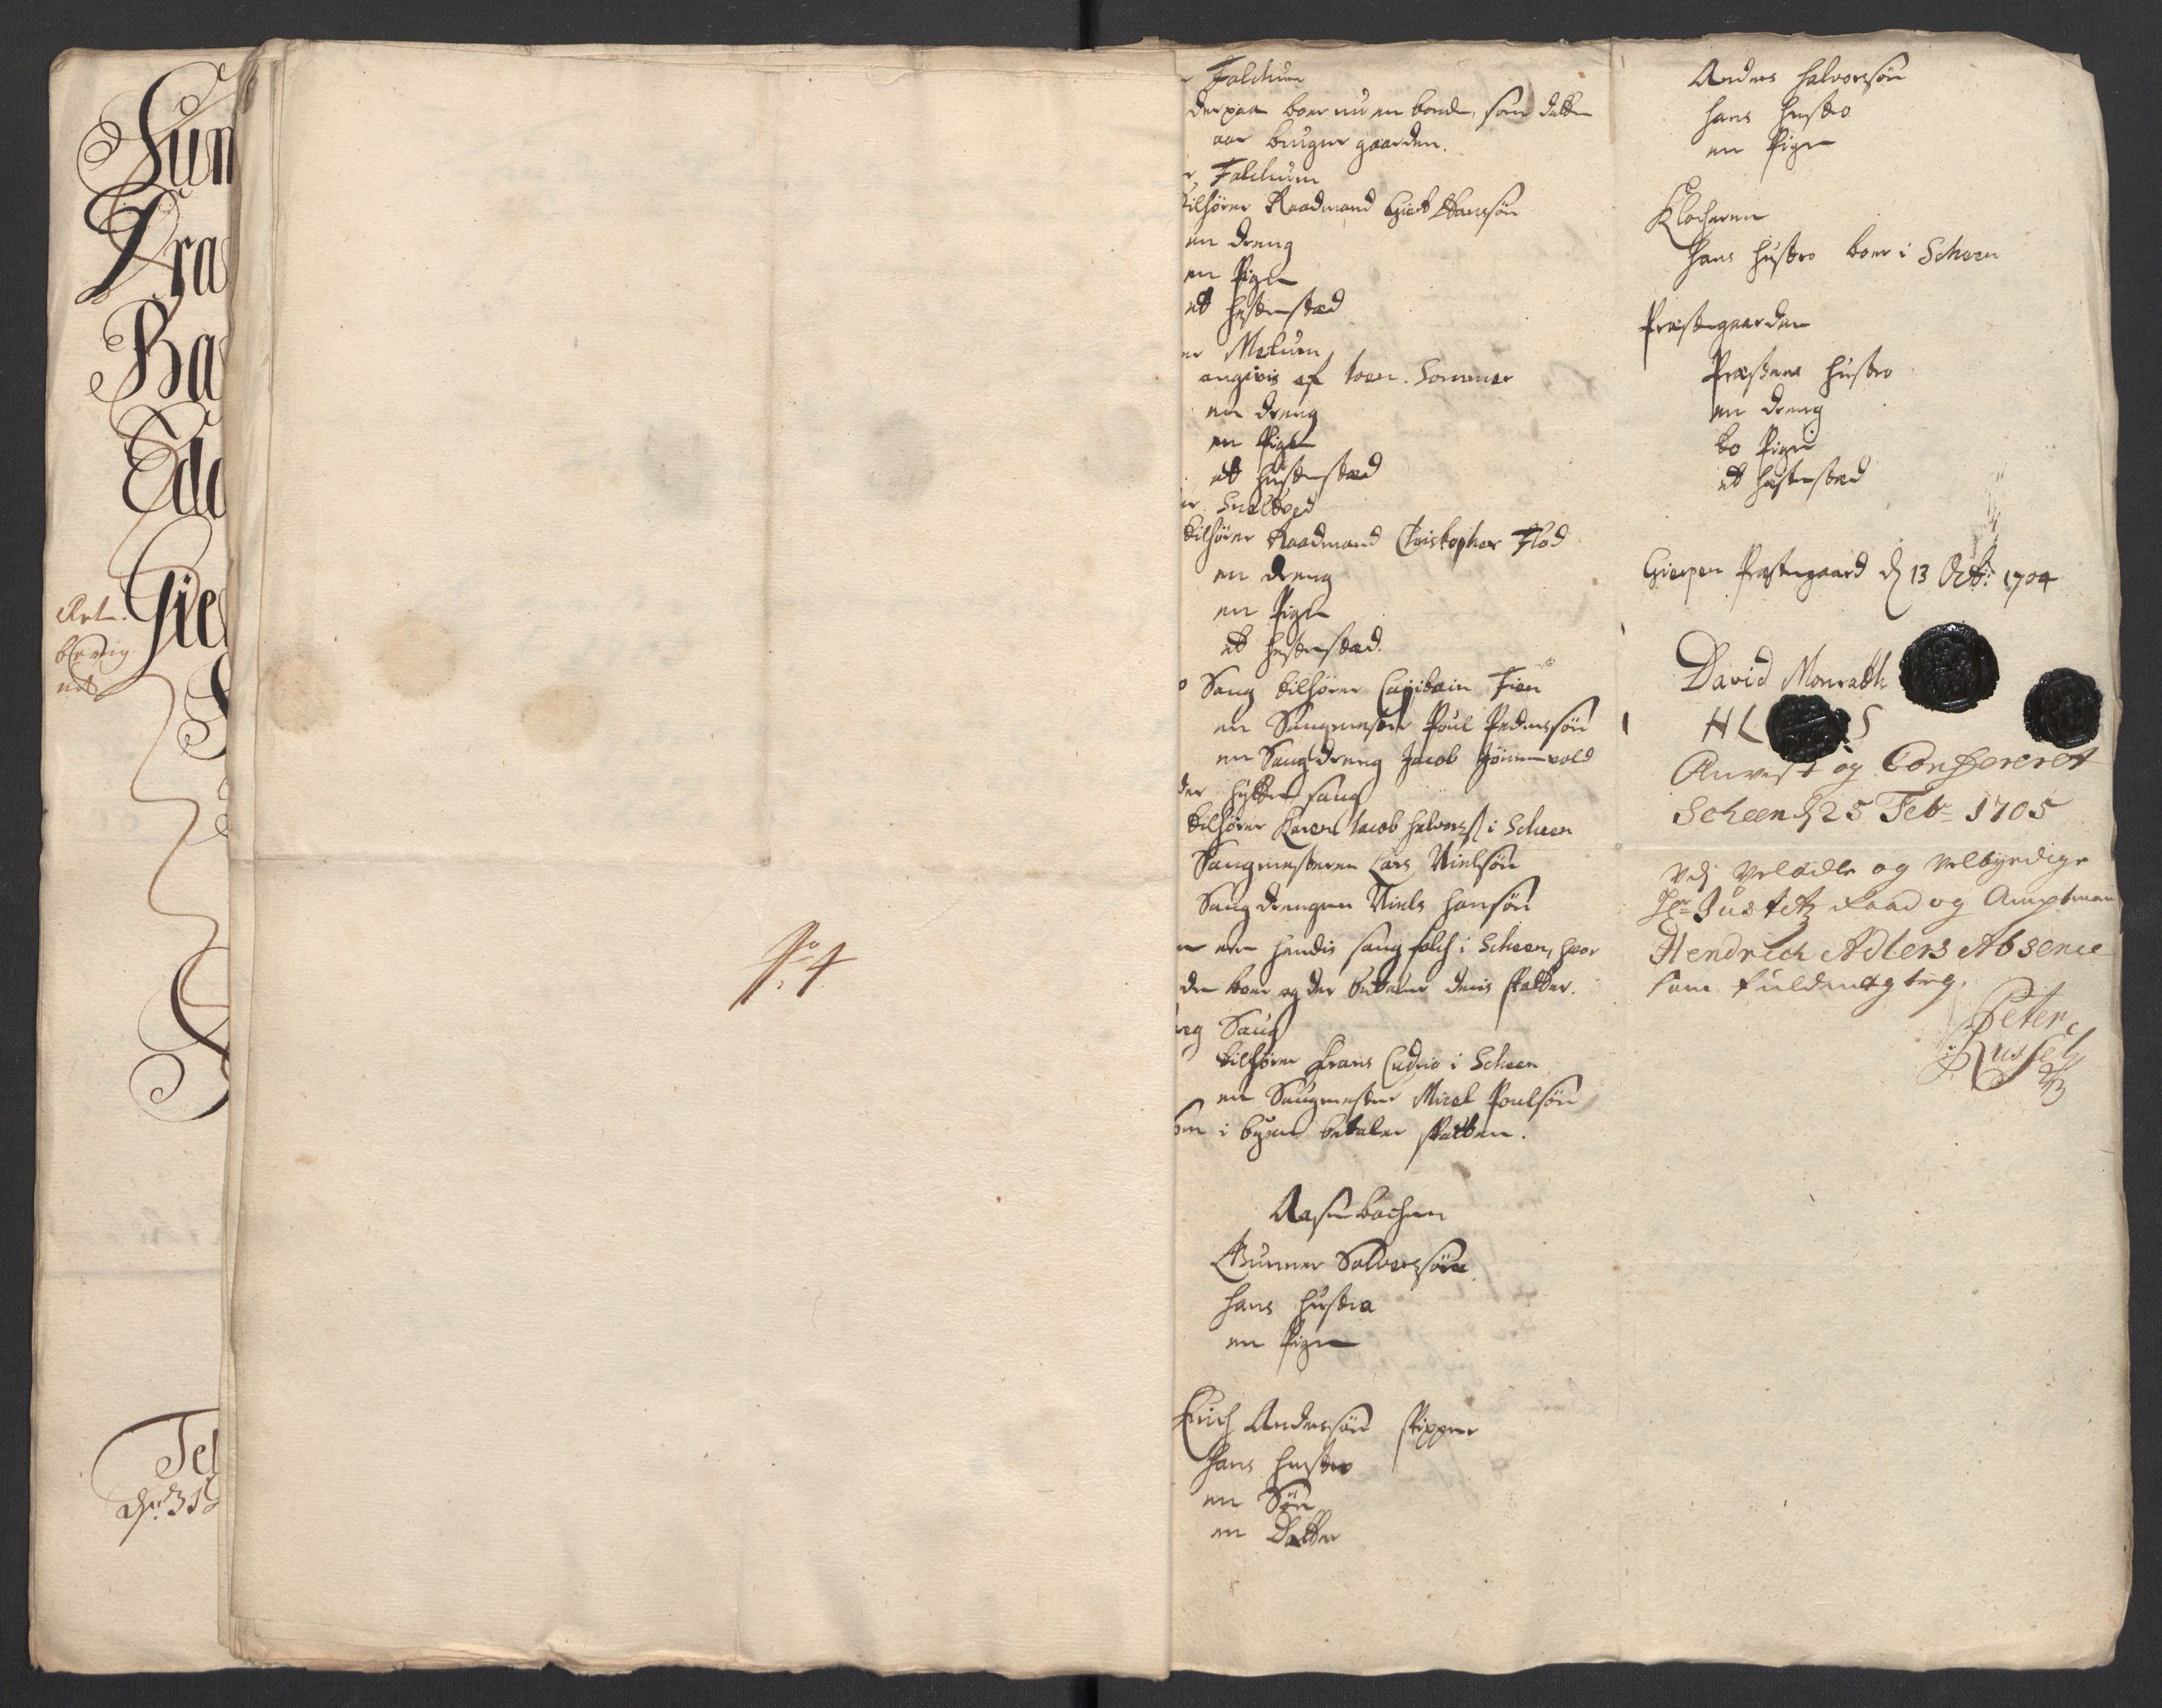 Sum
Pra
Ba
Edd
Gie
Tel
No 4
Falchum
der paa boer nu en bonde, som dette
aar bruger gaarden.
Falchum
tilhører Raadmand Giert Hansøn
en dreng
en Pige
et hestested
Melum
angivis af Coen. Sommer
en dreng
en Pige
et hestested
tilhører Raadmand Christopher Flod
en dreng
en Pige
et hestested
Saug tilhører Capitain Fien
en Saugmester Poul Pedersøn
en Saugdreng Jacob
der hytte saug
tilhører Karen Jacob Halvorss i Scheen
Saugmesteren Lars Nielsøn
Saug drengen Niels Hansøn
ere hendis saug folch i Scheen, hvor
de boer og der betaler deris skatter.
Saug
tilhører Frans Cudrio i Scheen
en Saugmester Micel Poulsøn
som i byen betaler skatten.
Aasebachen
Gunner Salversøn
hans hustro
en Pige
Erich Andersøn skipper
hans hustro
en Søn
en Datter
Anders Halvorsøn
hans hustro
en Pige
Klocheren
hans hustro boer i Scheen
Præstegaarden
Præstens hustro
en dreng
to Piger
et hestested
Gierpen Præstegaard d 13 Octb: 1704
David Monrath
H L S
Anvist og Confereret
Scheen d 25 Feb: 1705
Vdj Velædle og Velbyrdige
Hr Justitz Raad og Amptmand
Hendrich Adlers Absence
som fuldmegtig.
Peter
Russel